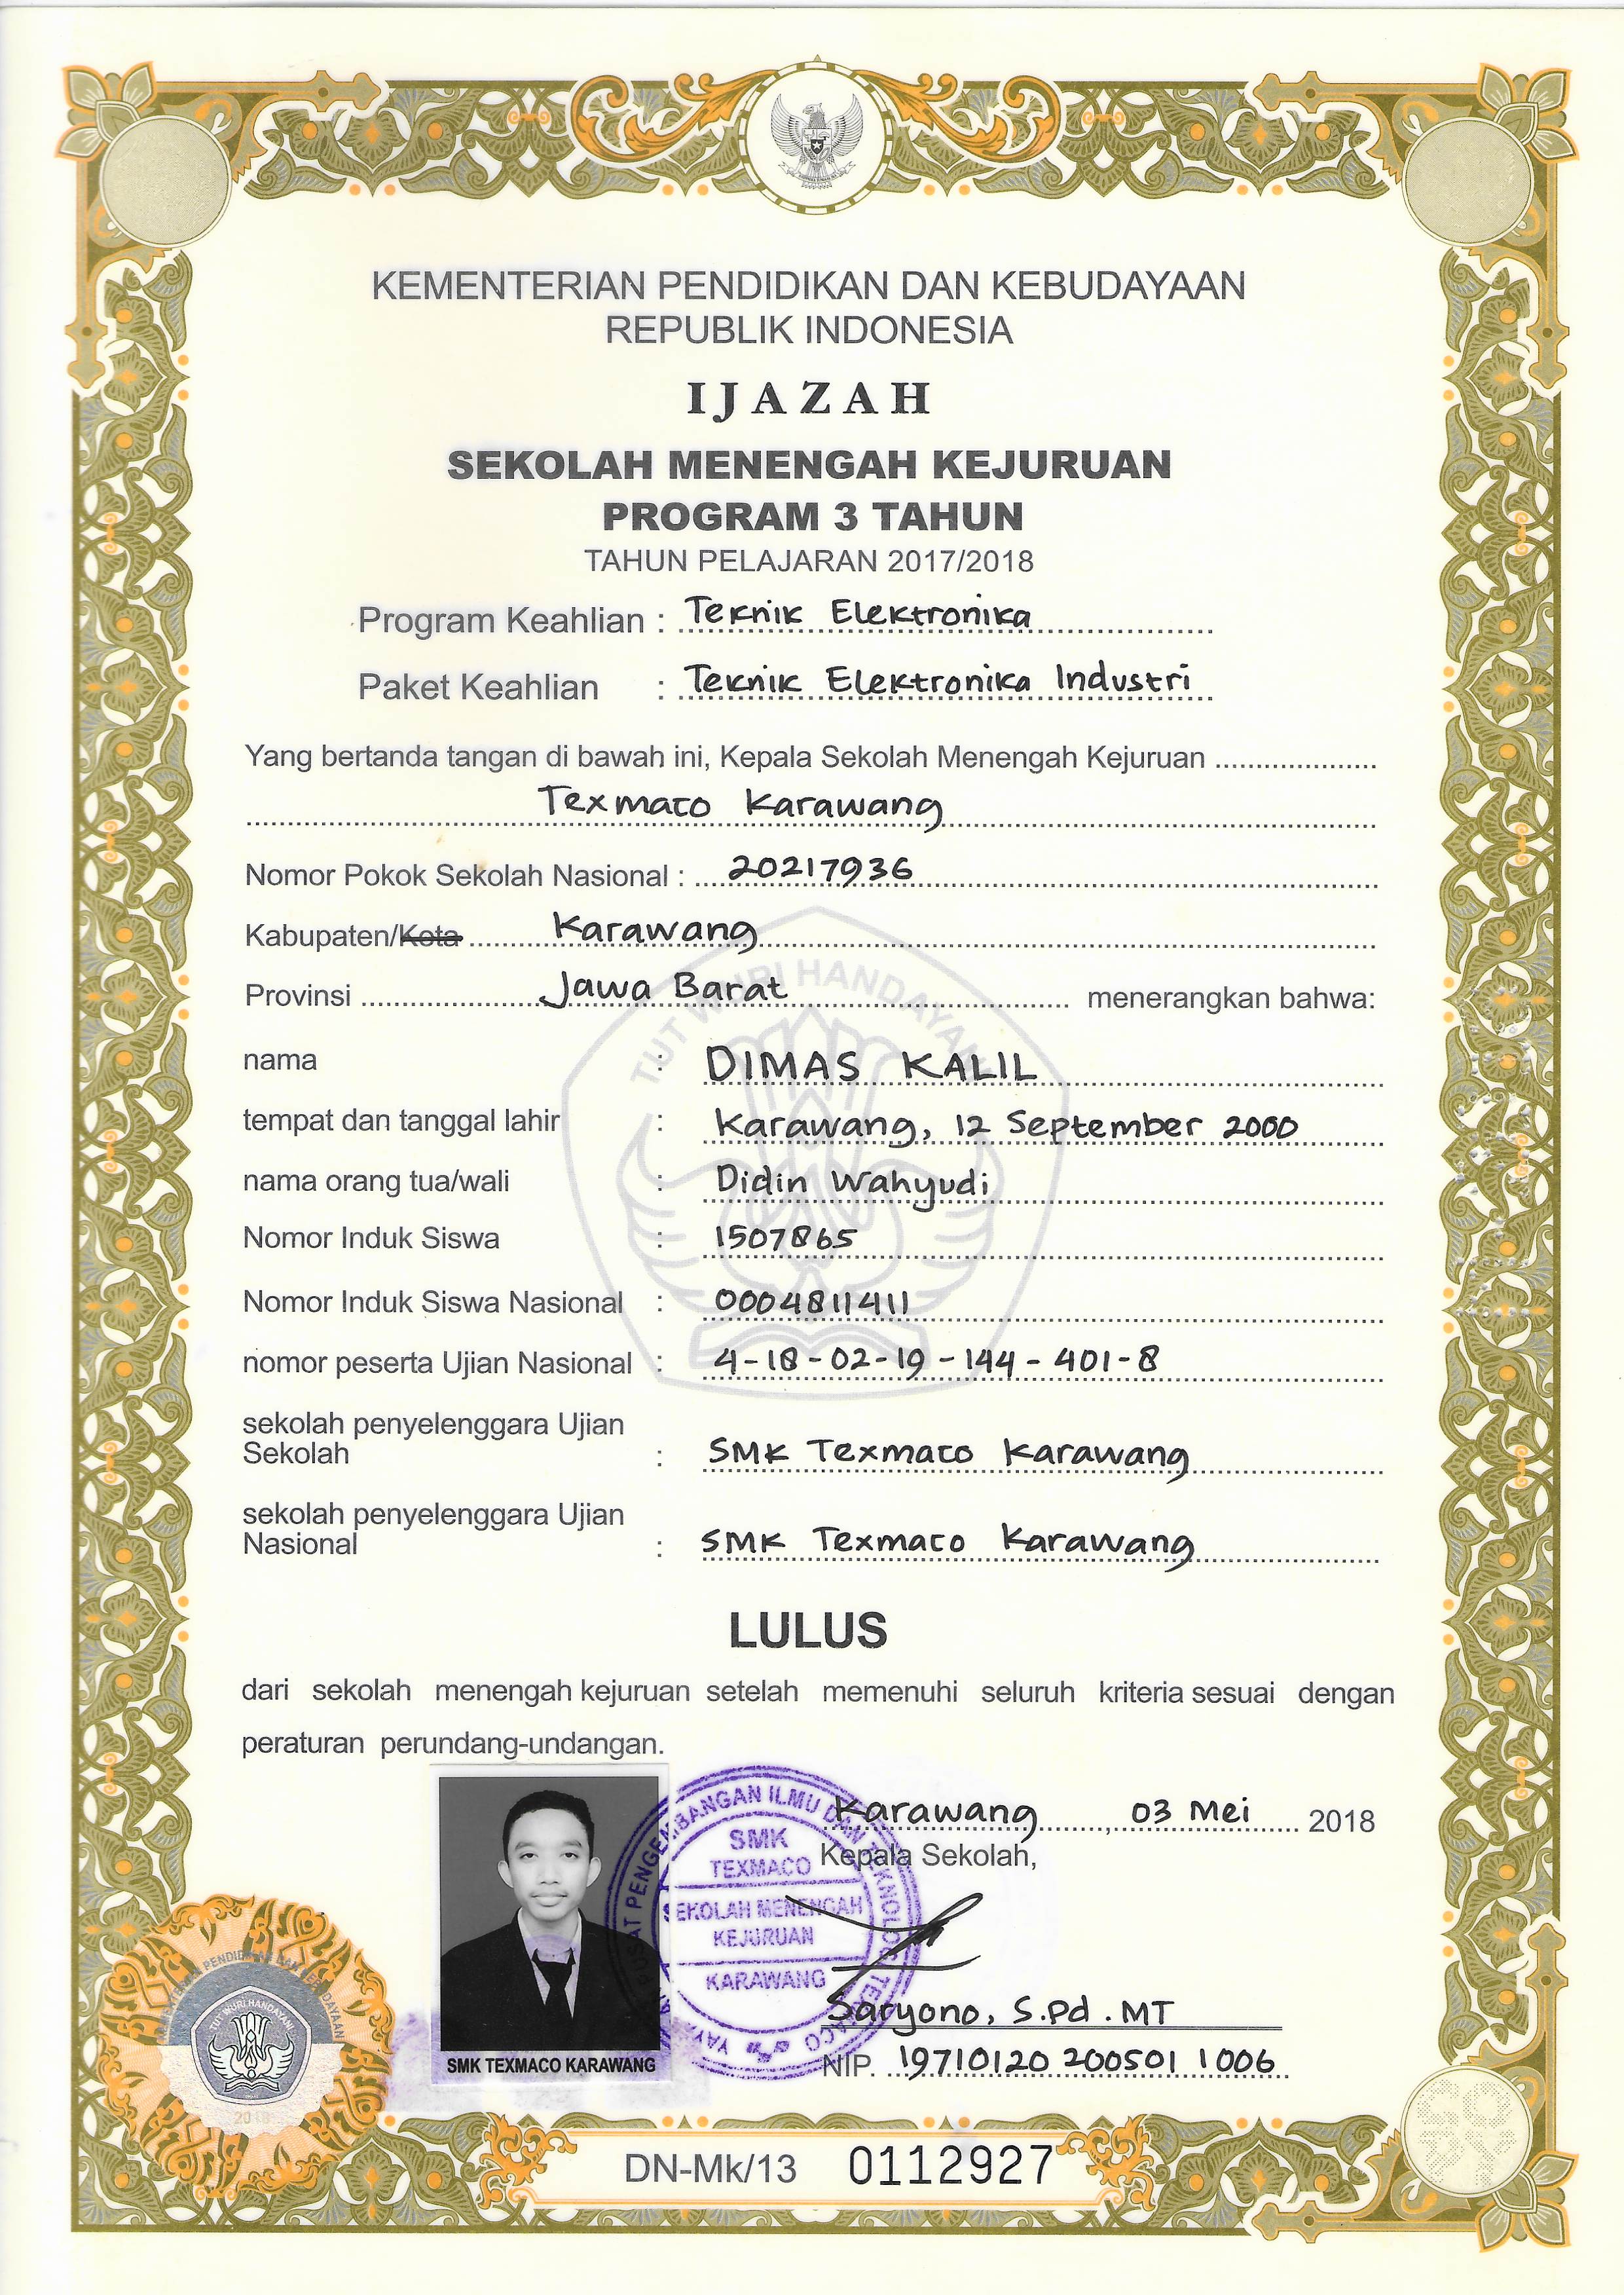 KEMENTERIAN PENDIDIKAN DAN KEBUDAYAAN
REPUBLIK INDONESIA
IJAZAH
SEKOLAH MENENGAH KEJURUAN
PROGRAM 3 TAHUN
TAHUN PELAJARAN 2017/2018
Program Keahlian : Teknik Elektronika
Paket Keahlian : Teknik Elektronika Industri
Yang bertanda tangan di bawah ini, Kepala Sekolah Menengah Kejuruan
Texmaco Karawang
Nomor Pokok Sekolah Nasional : 20217936
Kabupaten/Kota Karawang
Provinsi Jawa Barat menerangkan bahwa:
TUT WURI HANDAYANI
nama : DIMAS KALIL
tempat dan tanggal lahir : Karawang, 12 September 2000
nama orang tua/wali : Didin Wahyudi
Nomor Induk Siswa : 1507865
Nomor Induk Siswa Nasional : 0004811411
nomor peserta Ujian Nasional : 4-18-02-19-144-401-8
sekolah penyelenggara Ujian
Sekolah : SMK Texmaco Karawang
sekolah penyelenggara Ujian
Nasional : SMK Texmaco Karawang
LULUS
dari sekolah menengah kejuruan setelah memenuhi seluruh kriteria sesuai dengan
peraturan perundang-undangan.
Karawang, 03 Mei 2018
Kepala Sekolah,
PUSAT PENGEMBANGAN ILMU DAN TEKNOLOGI TEXMACO
SMK
TEXMACO
SEKOLAH MENENGAH
KEJURUAN
KARAWANG
Saryono, S.Pd.MT
NIP. 19710120 200501 1006
SMK TEXMACO KARAWANG
TUT WURI HANDAYANI
2018
DN-Mk/13 0112927